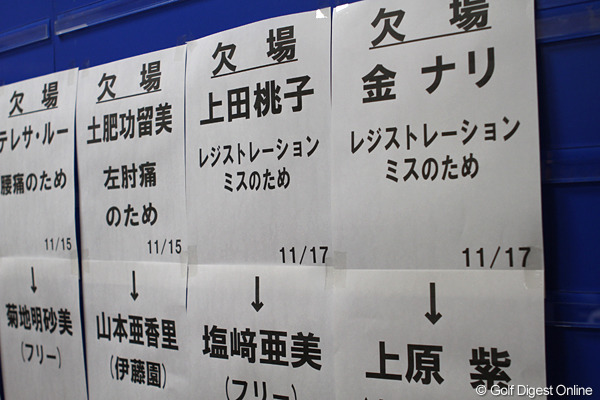 欠場
テレサ・ルー
腰痛のため
11/15
↓
菊地明砂美
(フリー)
欠場
土肥功留美
左肘痛
のため
11/15
↓
山本亜香里
(伊藤園)
欠場
上田桃子
レジストレーション
ミスのため
11/17
↓
塩﨑亜美
(フリー)
欠場
金 ナリ
レジストレーション
ミスのため
11/17
↓
上原 紫
© Golf Digest Online